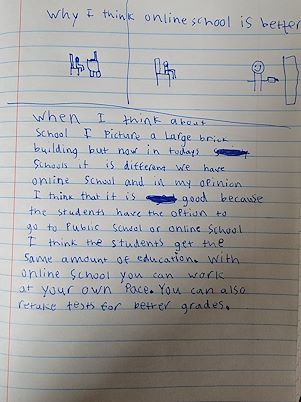 Why I think online school is better
When I think about
School I Picture a Large brick
building but now in todays
Schools it is different we have
online School and in my opinion
I think that it is good because
the students have the option to
go to Public School or online School
I think the students get the
Same amount of education. With
online School you can work
at your own Pace. You can also
retake tests for better grades.